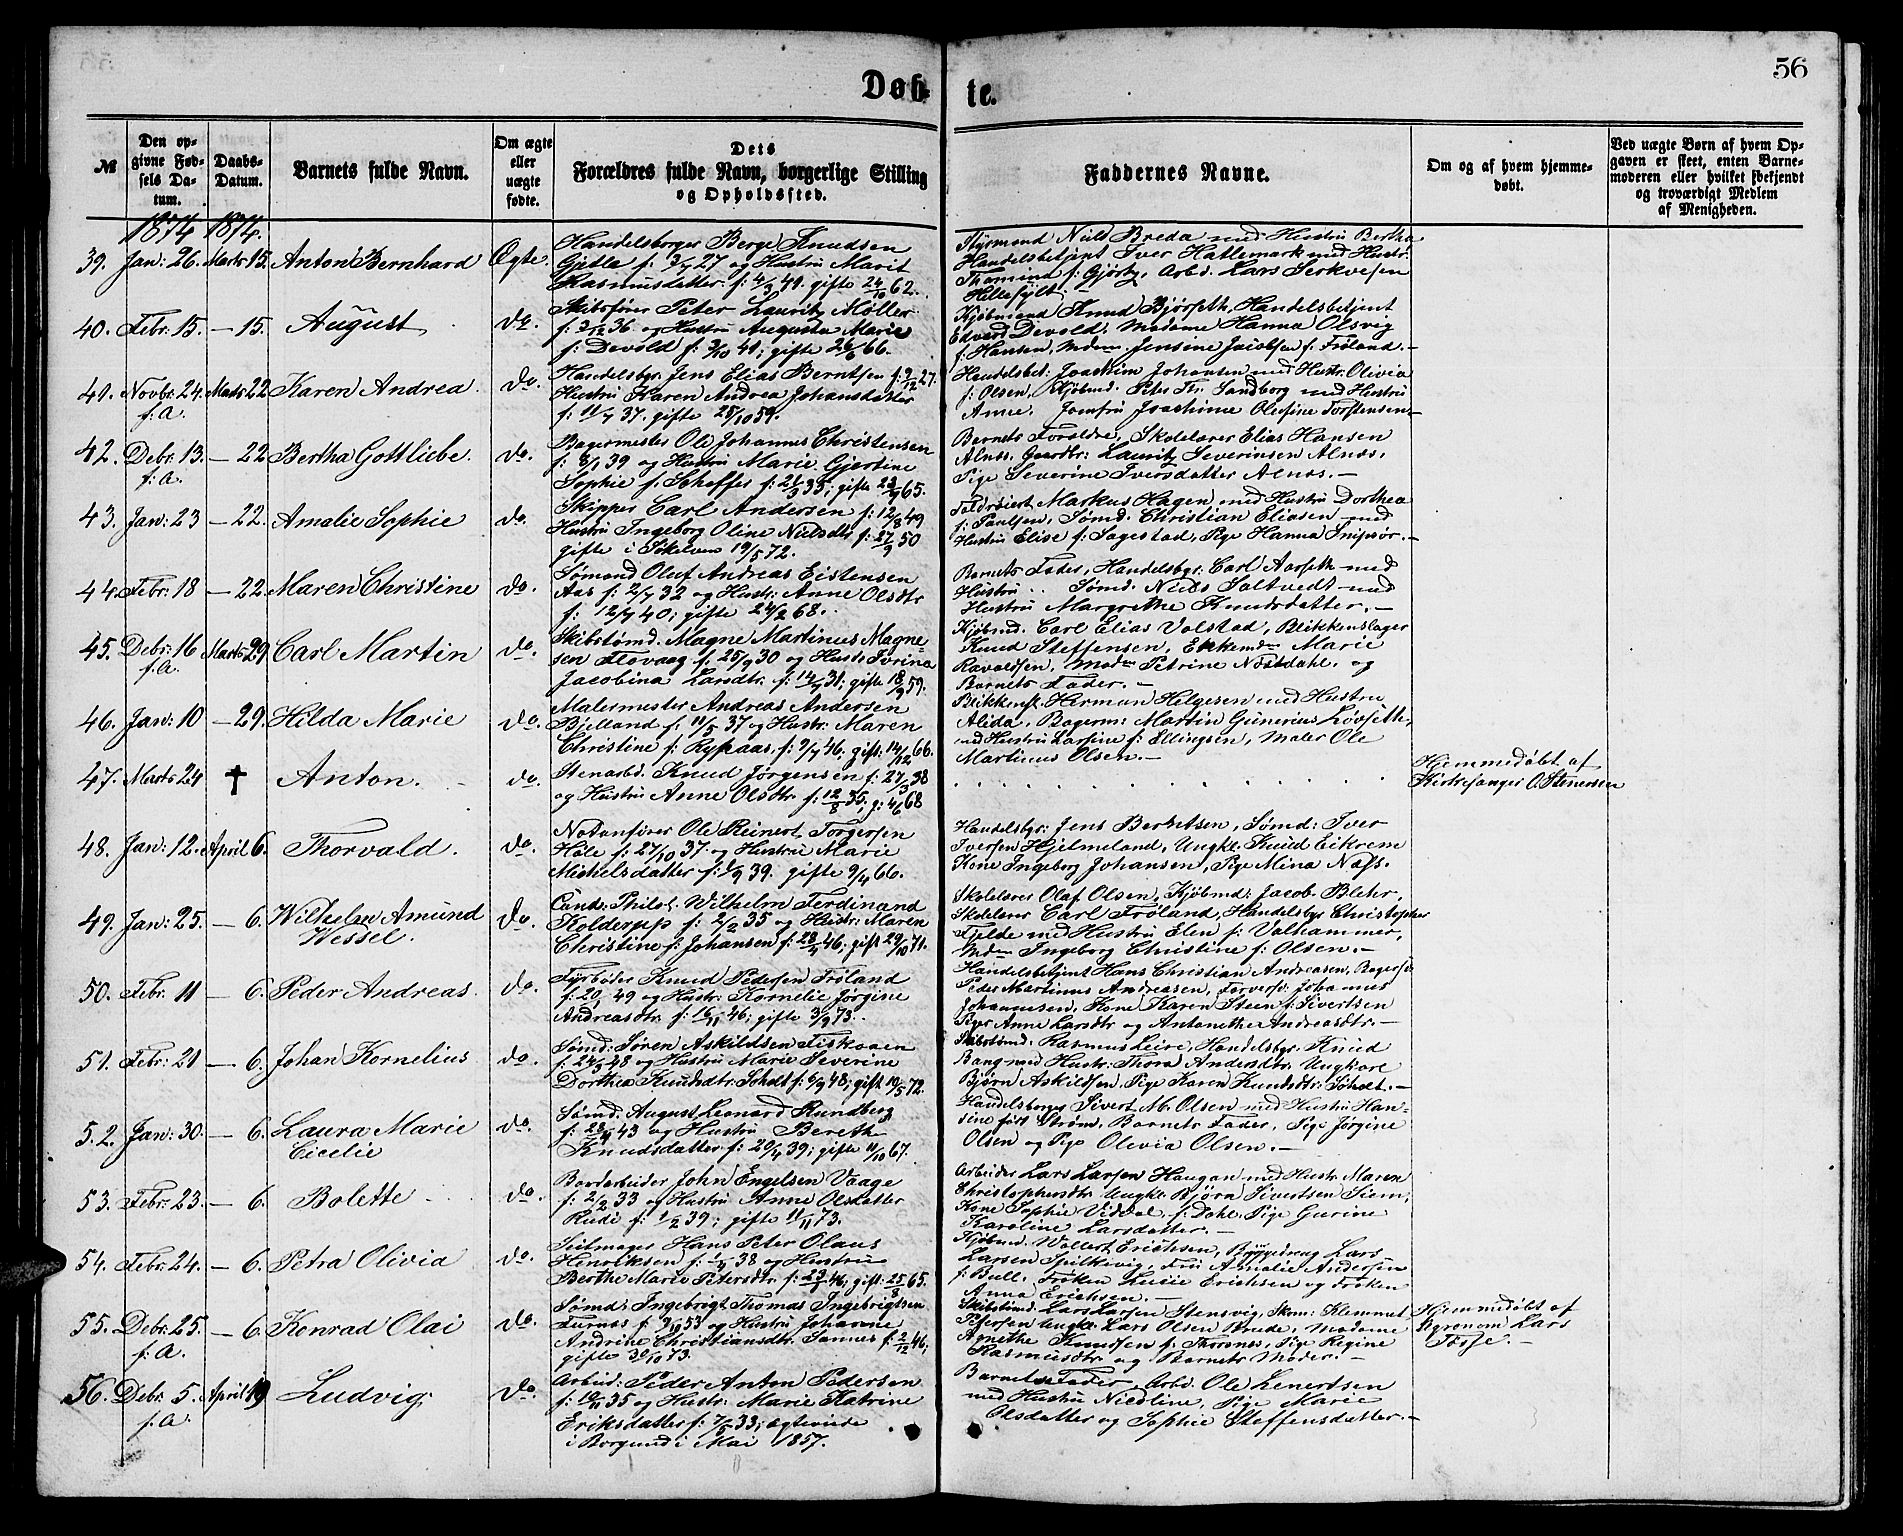 56
Døbte.
№
Den opgivne Fødsels Datum.
Daabs-Datum.
Barnets fulde Navn.
Om ægte eller uægte fødte.
Dets Forældres fulde Navn, borgerlige Stilling og Opholdssted.
Faddernes Navne.
Om og af hvem hjemmedøbt.
Ved uægte Børn af hvem Opgaven er skeet, enten Barnemoderen eller hvilket bekjendt og troværdigt Medlem af Menigheden.
1874 1874.
39. Jan: 26. Marts 15. Anton Bernhard Ægte.
Handelsborger Berge Knudsen
Gjetle f: 3/7 27 og Hustru Marit
Rasmusdatter f: 4/3 41. gifte 24/10 62.
Styrmand Niels Breda med Hustru Bertha
Handelsbetjent Iver Hatlemark med Hustr:
Thomine f: Gjørtz, Arbd. Lars
Hellesylt.
40. Febr: 15. — 15. August do.
Skibsfører Peter Lauritz Møller
f: 2/12 36 og Hustru Augusta Marie
f: Devold f: 3/10 41; gifte 26/6 66.
Kjøbmand Knud Bjørseth, Handelsbetjent
Edvard Devold, Madame Hanna Olsvig
f: Hansen, Mdm. Jensine Jacobsen f: Frøland.—
41. Novbr: 24. f.A. Marts 22 Karen Andrea. do.
Handelsbgr. Jens Elias Berntsen f: 9/12 27.
Hustru Karen Andrea Johansdatter
f: 11/7 37. gifte 25/10 59.
Handelsbet: Joachim Johansen med Hustr: Olivia
f: Olsen, Kjøbmd. Peter Fr: Sandborg med Hustru
Anne. Jomfru Joachime Olufine Torstensen.—
42. Debr: 13. f:A. — 22 Bertha Gottliebe. do.
Bagermester Ole Johannes Christensen
f: 8/1 39 og Hustru Marie Gjertine
Sophie f: Scheffer f: 21/3 35; gifte 23/4 65.
Barnets Forældre, Skolelærer Elias Hansen
Alnæs, Gaardbr: Lauritz Severinsen Alnæs,
Pige Severine Iversdatter Alnæs.—
43. Jan: 23 — 22. Amalie Sophie do.
Skipper Carl Andersen f: 12/8 49
Hustru Ingeborg Oline Nielsdtr f: 27/9 50
gifte i Sikelven 19/5 72.
Toldroiert Markus Hagen med Hustru Dorthea
f: Paulsen, Sømd. Christian Eliasen med
Hustru Elise f: Sagestad, Pige Hanna Snipsør.—
44. Febr: 18 — 22. Maren Christine do.
Sømand Oluf Andreas Eistensen
Aas f: 2/7 32 og Hustr: Anne Olsdtr
f: 12/7 40; gifte 24/2 68.
Barnets Fader, Handelsbgr: Carl Aarseth med
Hustru . . Sømd: Niels Saltvedt med
Hustru Margrethe Knudsdatter.—
45. Debr: 16 f.A. Marts 29 Carl Martin do.
Skibstømd. Magne Martinus Magne-
sen Flovaag f: 25/9 30 og Hustr: Ivrina
Jacobina Larsdtr. f: 14/7 31; gift 18/9 59.
Kjøbmd. Carl Elias Volstad, Blikkenslager
Knud Steffensen, Enkemdm Marie
Ravaldsen, Madm Petrine Nostdahl. og
Barnets Fader.—
46. Jan: 10 — 29. Hilda Marie do.
Malermester Andreas Andersen
Bjelland f: 11/5 37 og Hustr: Maren
Christine f: Rypaas, f: 9/7 46, gift: 14/12 66.
Blikkensl. Herman Helgesen med Hustru
Alida, Bagerm: Martin Gunerius Løvseth,
med Hustru Larsine f: Ellingsen, Maler Ole
Martinus Olsen.—
47. Marts 24 † Anton. do.
Stenarbd. Knud Jørgensen f: 27/3 38
og Hustru Anne Olsdtr. f: 12/8 35, g: 4/6 68
Hjemmedøbt af
Kirkesanger O. Stenersen
48. Jan: 12. April 6. Thorvald. do.
Notenfører Ole Reinert Torgersen
Hole f: 27/10 37. og Hustru Marie
Michelsdatter f: 1/9 39. gifte 9/4 66.
Handelsbgr: Jens Berntsen, Sømd: Iver
Iversen Hjelmeland, Ungk: Knud Eikrem
Kone Ingeborg Johansen, Pige Mina Næss.
49. Jan: 25. — 6. Wilhelm Amund Wessel. do.
Cand: Philol: Wilhelm Ferdinand
Kolderup f: 2/2 35 og Hustr: Maren
Christine f: Johansen f: 28/4 46; gift 29/10 71.
Skolelærer Olaf Olsen, Kjøbmd: Jacob Blehr,
Skolelærer Carl Frøland, Handelsbgr Christopher
Fjelde med Hustru Elen f: Valhammer,
Mdm Ingeborg Christine f: Olsen.—
50. Febr: 11 — 6. Peder Andreas. do.
Fyrbøder Knud Pedersen Frøland
f: 20 49 og Hustr: Kornelie Jørgine
Andreasdtr. f: 16/11 46; gifte 3/9 73.
Handelsbetjent Hans Christian Andreasen, Bagersv:
Peder Martinus Andreasen, Farversv: Johannes
Johannesen, Kone Karen Steen f: Sivertsen
Pige Anne Larsdtr og Antonethe Andreasdtr.—
51. Febr: 21 — 6. Johan Kornelius. do.
Sømd: Søren Askildsen Fiskaaen
f: 24/3 48 og Hustru Marie Severine
Dorthea Knudsdtr: Soholt f: 6/9 48; gift 10/5 72.
Skibstømd: Rasmus Leire, Handelsbgr: Knud
Bang med Hustr: Thora Andersdtr: Ungkarl
Bjørn Askildsen, Pige Karen Knudsdtr: Soholt.—
52. Jan: 30. — 6. Laura Marie Cicelie do.
Sømd: August Leonard Rundberg
f: 28/4 43 og Hustru Bereth
Knudsdatter f: 20/4 39; gifte 11/10 67.
Handelsborger Sivert M. Olsen med Hustru Han-
sine født Strøm, Barnets Fader, Pige Jørgine
Olsen og Pige Olivia Olsen.—
53. Febr: 23. — 6. Bolette do.
Bordarbeider John Engelsen Vaage
f: 2/2 33 og Hustru Anne Olsdatter
Rudi f: 1/2 39; gifte 11/11 73.
Arbeider Lars Larsen Haugan med Hustr: Maren
Christophersdtr. Ungk: Bjørn Sivertsen Siem,
Kone Sophie Viddal f: Dahl. Pige Gurine
Karoline Larsdatter.—
54. Febr: 24. — 6. Petra Olivia do.
Seilmager Hans Peter Olaus
Henriksen f: 1/4 38 og Hustru
Berthe Marie Petersdtr. f: 23/1 46; gift 25/8 65.
Kjøbmd. Wollert Erichsen, Byggedreng Lars
Larsen Spilkevig, Frue Amalie Andersen
f: Bull. Frøken Lucie Erichsen og Frøken
Anna Erichsen.—
55. Debr: 25. f:A. — 6. Konrad Olai do.
Sømd: Ingebrigt Thomas Ingebrigtsen
Furnæs f: 9/11 53 og Hustru Johanne
Andrine Christiansdtr. Sannes f: 2/12 46,
gifte 30/10 73.
Skibstømd: Lars Larsen Stensvig, Skom: Klemmet
Pedersen Ungk: Lars Olsen Brude, Madame
Agnethe Knudsen f: Thorsnes, Pige Regine
Rasmusdtr og Barnets Moder.—
Hjemmedøbt af
Agronom Lars
Fosse.—
56. Debr: 5. f:A. April 19 Ludvig do.
Arbeid: Peder Anton Pedersen
f: 10/11 35 og Hustr: Marie Katrine
Eriksdatter f: 7/6 33; ægteviede
i Borgund i Mai 1857.
Barnets Fader, Arbd. Ole Lenertsen
med Hustru Nicoline, Pige Marie
Olsdatter og Sophie Steffensdatter.—